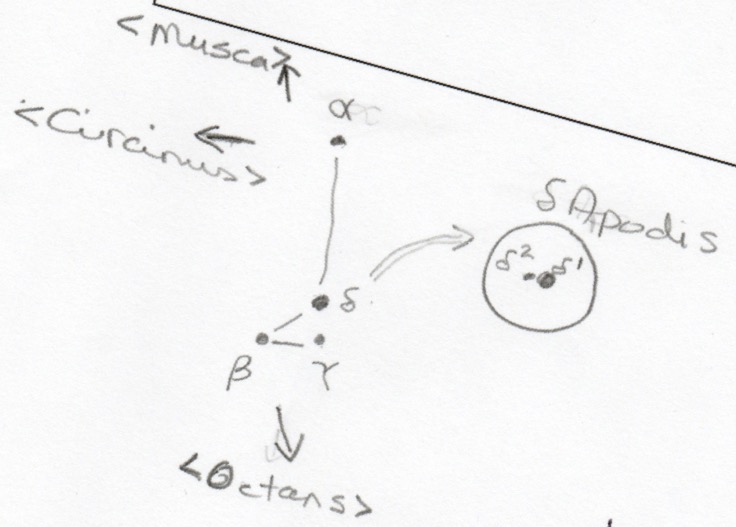 <Musca>
α
<Circinus>
δ Apodis
δ² δ¹
δ
β γ
<Octans>